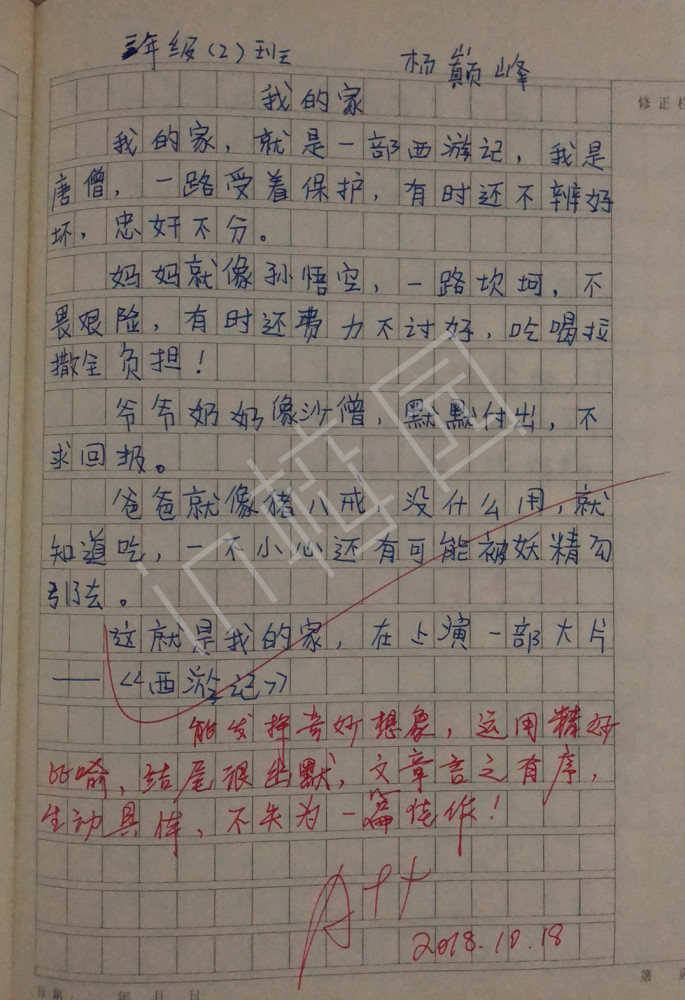 三年级(2)班 杨巅峰
修正栏
我的家
我的家，就是一部西游记，我是
唐僧，一路受着保护，有时还不辨好
坏，忠奸不分。
妈妈就像孙悟空，一路坎坷，不
畏艰险，有时还费力不讨好，吃喝拉
撒全负担！
爷爷奶奶像沙僧，默默付出，不
求回报。
爸爸就像猪八戒，没什么用，就
知道吃，一不小心还有可能被妖精勾
引去。
这就是我的家，在上演一部大片
——《西游记》
能发挥奇妙想象，运用精妙
比喻，结尾很幽默，文章言之有序，
生动具体，不失为一篇佳作！
A++
2018.10.18
第
年 月 日
in校园